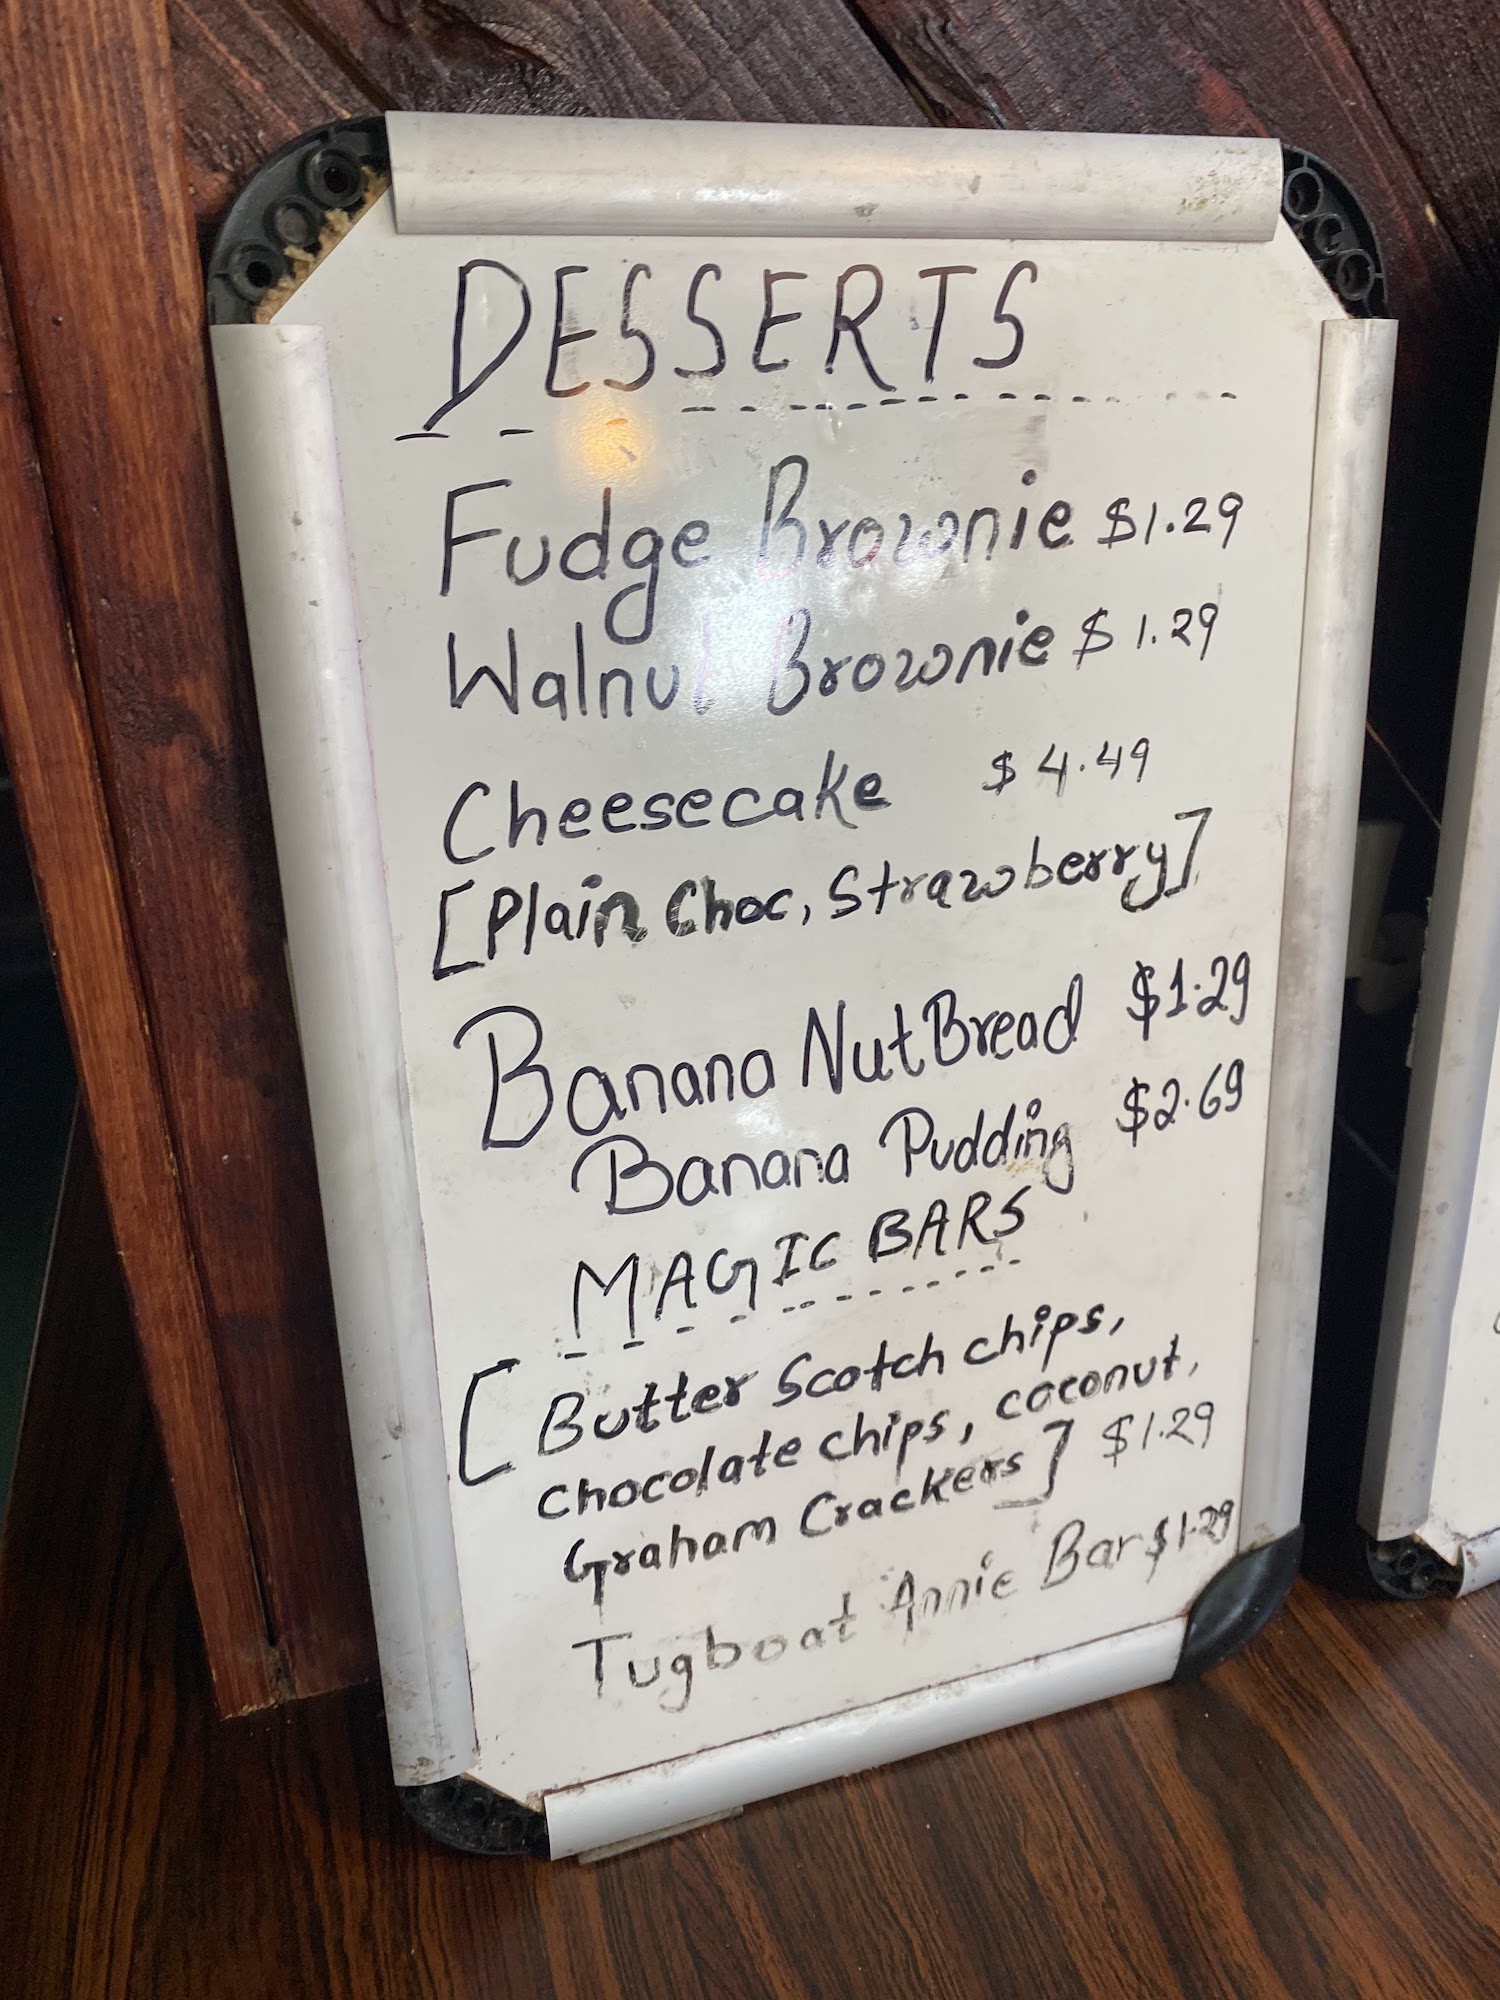 DESSERTS
Fudge Brownie $1.29
Walnut Brownie $1.29
Cheesecake $4.49
[Plain Choc, Strawberry]
Banana Nut Bread $1.29
Banana Pudding $2.69
MAGIC BARS
[Butter Scotch chips,
chocolate chips, coconut,
Graham Crackers] $1.29
Tugboat Annie Bar $1.29